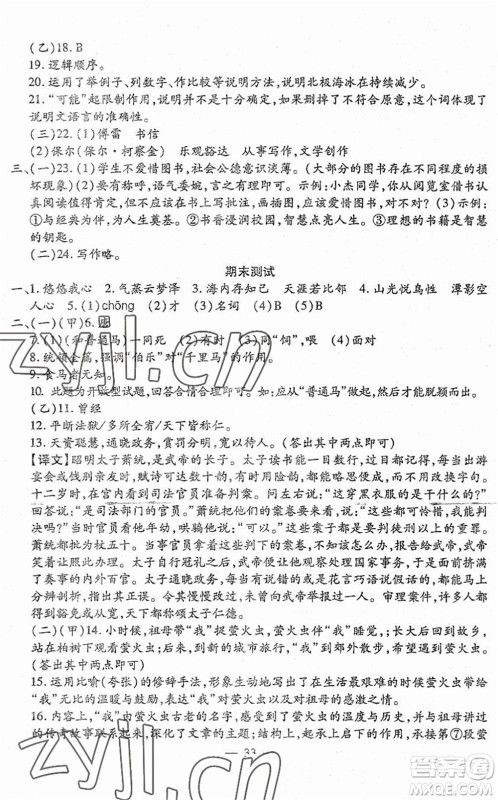 (乙)18. B
19. 逻辑顺序。
20. 运用了举例子、列数字、作比较等说明方法,说明北极海冰在持续减少。
21. “可能”起限制作用,说明并不是十分确定,如果去掉与事实不符,不符合原意,这个词体现了
说明文语言的准确性。
(三)22. (1)傅雷 书信
(2)保尔(保尔·柯察金) 乐观豁达 从事写作,文学创作
三、(一)23. (1)学生不爱惜图书,社会公德意识淡薄。(大部分的图书存在不同程度的损
坏现象)(2)要有称呼,语气委婉,言之有理即可。示例:小杰同学,你从阅览室借书认
真阅读值得我们学习,但不应该在书上乱写乱画。图书是公共财产,供大家传阅,而且书
中有丰富的知识,应该爱惜图书,不应该损坏图书。(3)要与书香校园有关即可。示例:
①与经典同行,为人生奠基。②书香浸润校园,智慧点亮人生。③理想的书籍是智慧
的钥匙。
(二)24. 写作略。
期末测试
一、1. 悠悠我心 2. 气蒸云梦泽 3. 海内存知己 天涯若比邻 4. 山光悦鸟性 潭影空
人心 5. (1)chōng (2)才 (3)名 (4)川
二、(一)(甲)6.
7. (1)(和普通马)一同死 (2)有时 (3)同“饲”,喂 (4)面对
8. 统领全篇,强调“伯乐”对“千里马”的作用。
9. 食马者无知。
10. 此题为开放型试题,回答合情合理即可。如:应从“普通马”做起,然后脱颖而出。
(乙)11. 曾经
12. 平断法狱/多所全宥/天下皆称仁。
13. 天资聪慧,通晓政务,赏罚分明,宽以待人。(答出其中两点即可)
【译文】昭明太子萧统,是武帝的长子。太子读书能一目数行,过目不忘。每当出游
宴会或给人饯别亲友时,武帝有时要他作剧韵诗,有时用险韵,都能片刻作成,不加修改。
十二岁时,在宫内看到司法官员准备审判案卷。问左右说:“这穿黑衣服的是干什么的?”
回答说:“是司法部门的官员。”萧统把他们的案卷拿来看了看,说:“这些我都能理解,我能
判决吗?”官员们因他年幼,哄骗他说:“可以。”那些案情都应判重刑,
萧统都批示为杖五十。当事官员拿着这判下的案卷,不知怎么办,就禀告武帝,武帝笑着
依从了他的判决。太子自行冠礼之后,武帝便让他照顾处理国家事务,于是他的面前挤满
了奏事的内外百官。太子通晓政务,每当所奏之事有谬误或是花言巧语说假话,他都马上
分辨剖析,可否立断。令其慢慢改过,未尝纠举一人。审理案件,
多所保全宽宥,天下都称太子仁德。
(二)(甲)14. 小时候,祖母带“我”捉萤火虫,萤火虫伴“我”睡觉,;长大后回到故乡,
站在石拱桥上,看萤火虫点点飞;来到新的城市旅行,“我”到郊外散步,巧遇萤火虫。
(答出其中两点即可)
15. 运用比喻(夸张)的修辞手法,形象生动地写出在生活最艰难的时候萤火虫带给
“我”无比的温暖与鼓励,表达“我”对萤火虫以及对祖母的感激之情。
16. 内容上,“我”由萤火虫古老的名字,感受到了萤火虫的温度与历史,并与萤火虫
的传奇故事联系起来,深化了文章的主题;结构上,首尾呼应,承接第⑦段萤
33
zyjl.cn
zyjl.cn
答案圈
MXQE.COM